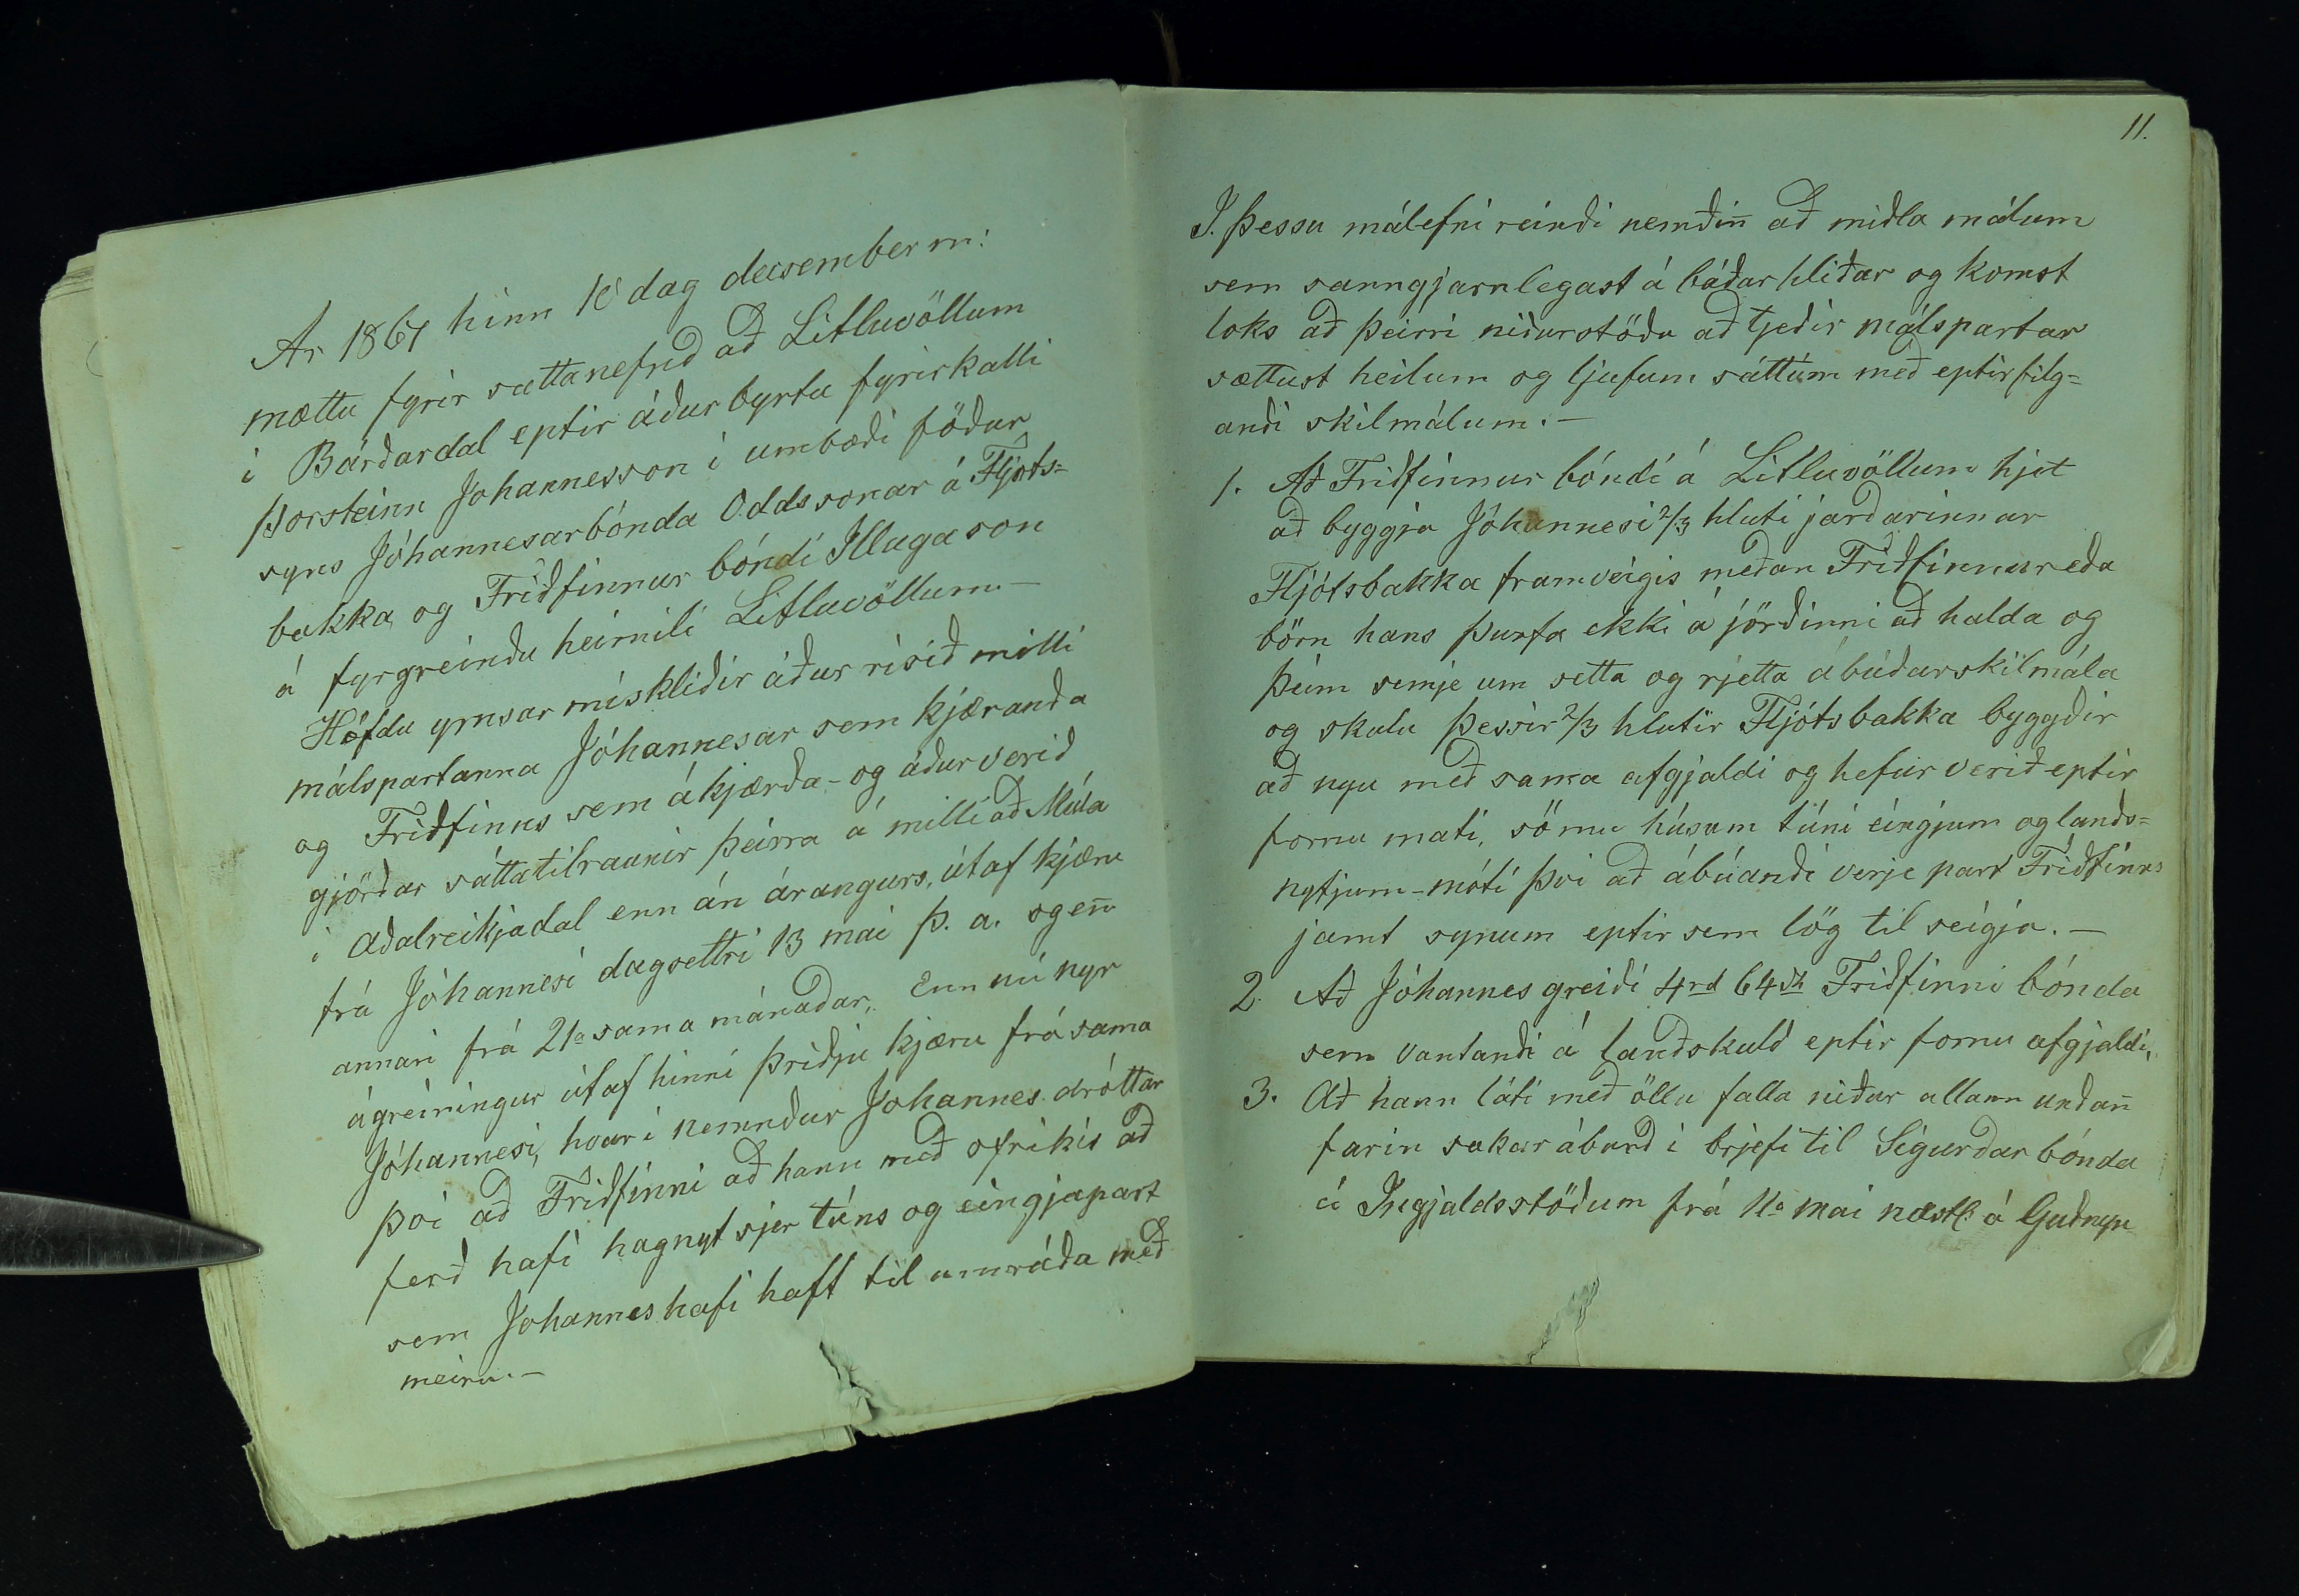 Ar 1867 hinn 10 dag decsember m:
mættu fyrir sattanefnd að Litluvöllum
i Bárðardal eptir áður byrtu fyrirkalli
Þorsteinn Johannesson í umboði föður
syns Jóhannesar bónda Oddssonar á Fljóts=
bakka, og Friðfinnur bóndi Illugason
á fyrgreindu heimili Litluvöllum.—
Höfdu ymsar misklidir áður risið milli
málspartanna Jóhannesar sem kjæranda
og Friðfinns sem ákjærða - og áður verið
gjörðar sáttatilraunir þeirra á milli að Múla
i Aðalreikjadal enn án árangurs, útaf kjæru
frá Jóhannesi dagsettri 13 mai þ. a. og enn
annari frá 21a sama mánaðar, Enn nú nyr
ágreiningur útaf hinni þriðju kjæru frá sama
Jóhannesi, hvar i nemndur Johannes dróttar
þvi að Friðfinni að hann með ofrikis að
ferð hafi hagnyt sjer túns og eingjapart
sem Johannes hafi haft til umráða með
meiru.—
11.
I. þessu málefni reindi nemdin að midla málum
sem sanngjarnlegast á báðar hliðar og komst
loks að þeirri niðurstöðu að tjeðir málspartar
sættust heilum og ljufum sáttum með eptirfilg=
andi skilmálum.—
1. Að Friðfinnur bóndi á Litluvöllum hjet
að byggja Jóhannesi 2/3 hluti jarðarinnar
Fljótsbakka framveigis meðan Friðfinnur eða
börn hans þurfa ekki á jörðinni að halda og
þeim semje um setta og rjetta ábúðarskilmála
og skulu þessir 2/3 hlutir Fljótsbakka byggðir
að nyu með sama afgjaldi og hefur verið eptir
fornu mati, sömu húsum túni eingjum og lands=
nytjum - móti þvi að ábúandi verje part Friðfinns
jamt synum eptir sem lög til seigja.—
2. Að Jóhannes greiði 4rd 64 sk Friðfinni bónda
sem vantandi á landskuld eptir fornu afgjaldi,
3. Að hann láti með öllu falla niður allann undan
farin sakaráburð i brjefi til Sigurðar bónda
á Ingjaldsstöðum frá 11a mai næstl. á Guðnyu